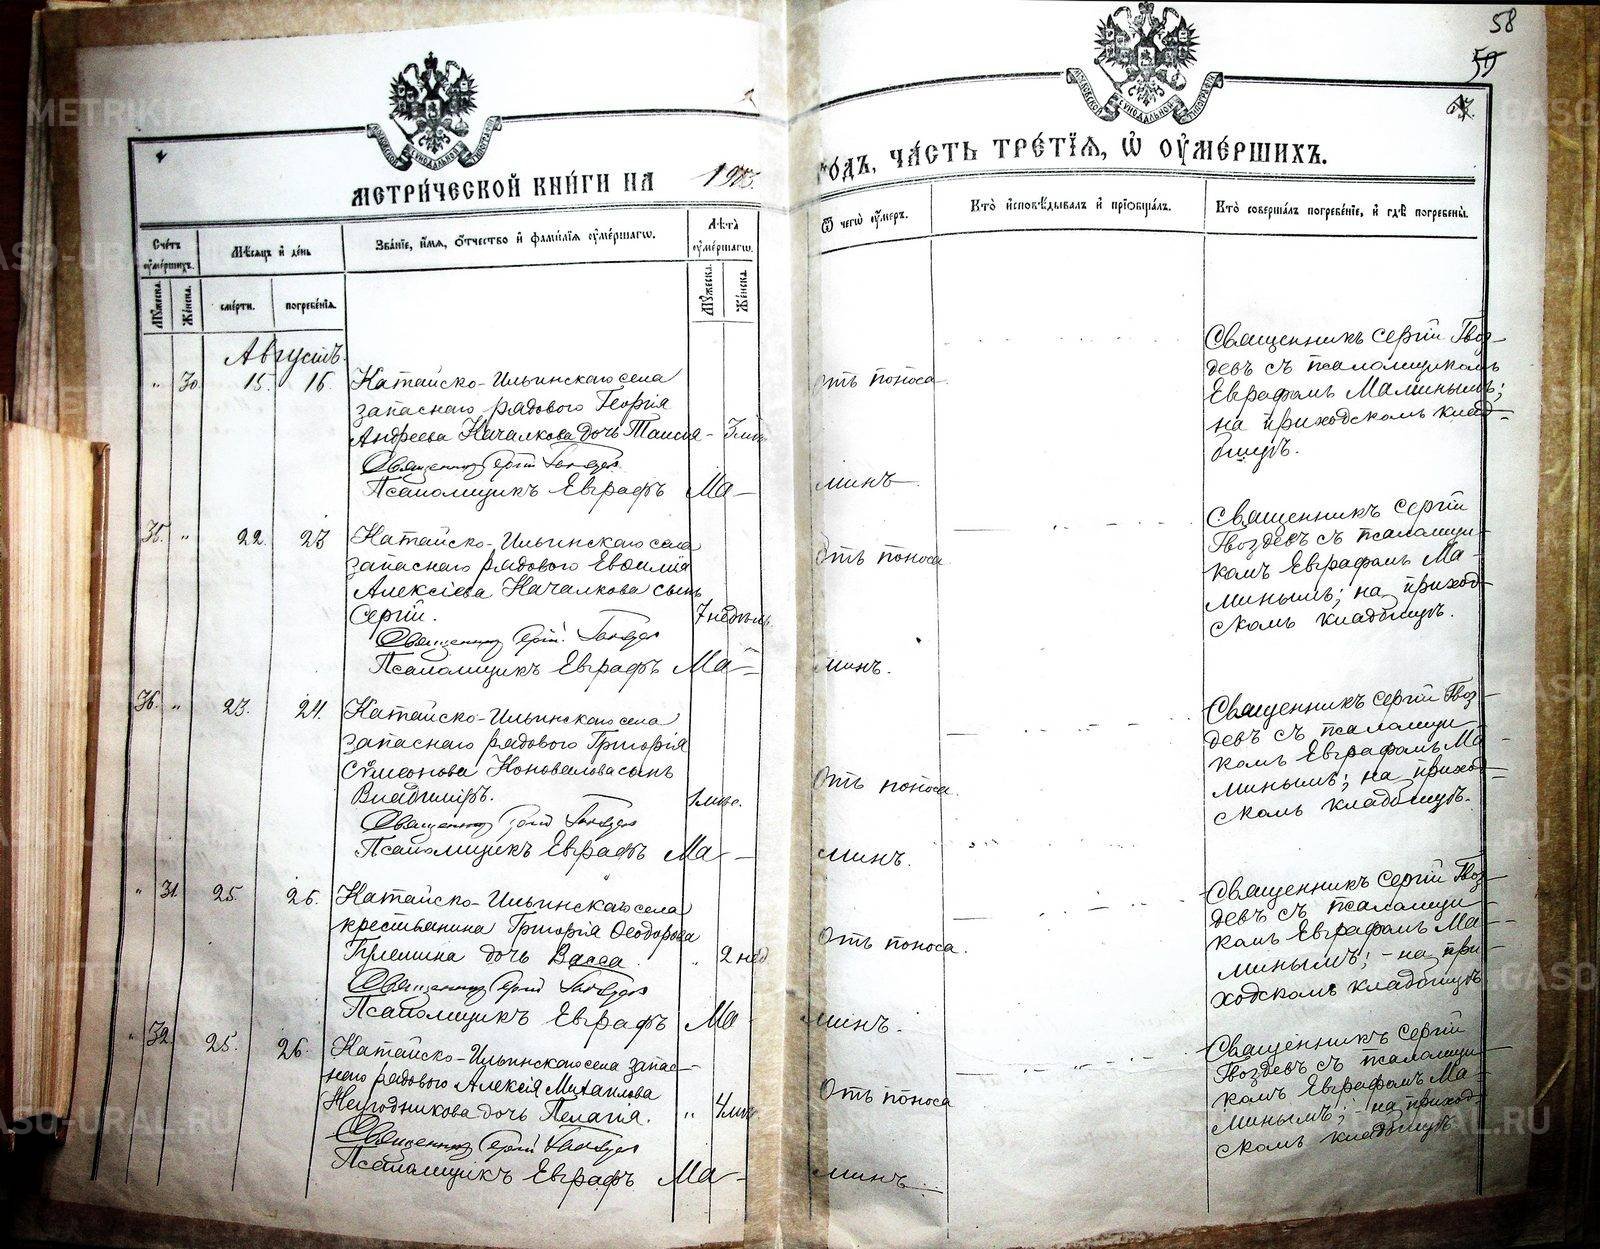 58
59
МЕТРИ́ЧЕСКОЙ КНИ́ГИ НА 1913. ГОДЪ, ЧА́СТЬ ТРЕ́ТІѦ, Ѡ҆ ОУ҆МЕ́РШИХЪ.
Сче́тъ оу҆ме́ршихъ.
Мꙋ́жеска.
Же́нска.
Мѣ́сѧцъ и҆ де́нь
сме́рти.
погребе́нїѧ.
Зва́нїе, и҆́мѧ, ѻ҆́тчество и҆ фами́лїѧ оу҆ме́ршагѡ.
Лѣ́та оу҆ме́ршагѡ.
Мꙋ́жеска.
Же́нска.
Ѿ чегѡ̀ оу҆́меръ.
Кто̀ и҆сповѣ́дывалъ и҆ прїѻбща́лъ.
Кто̀ соверша́лъ погребе́нїе, и҆ гдѣ̀ погребены̀.
Августъ.
" 30. 15. 16. Катайско-Ильинскаго села
запаснаго рядового Георгія
Андреева Качалкова дочь Таисія - 3 мѣс.
Отъ поноса.
Священникъ Сергій Гвоздевъ
Псаломщикъ Евграфъ Ма-
минъ.
Священникъ Сергій Гвоз-
девъ съ псаломщикомъ
Евграфомъ Маминымъ;
на приходскомъ клад-
бищѣ.
35. " 22. 23 Катайско-Ильинскаго села
запаснаго рядового
Алексіева Качалкова сынъ
Сергій. 7 недѣль.
Отъ поноса
Священникъ Сергій Гвоздевъ
Псаломщикъ Евграфъ Ма-
минъ.
Священникъ Сергій
Гвоздевъ съ псаломщи-
комъ Евграфомъ Ма-
минымъ; на приход-
скомъ кладбищѣ.
36. " 23. 24. Катайско-Ильинскаго села
запаснаго рядового Григорія
Сѵмеонова Коновалова сынъ
Владиміръ. 1 мѣс.
Отъ поноса.
Священникъ Сергій Гвоздевъ
Псаломщикъ Евграфъ Ма-
минъ.
Священникъ Сергій Гвоз-
девъ съ псаломщи-
комъ Евграфомъ Ма-
минымъ; на приход-
скомъ кладбищѣ.
" 31. 25. 26. Катайско-Ильинскаго села
крестьянина Григорія Ѳеодорова
дочь Васса. " 2 нед
Отъ поноса.
Священникъ Сергій Гвоздевъ
Псаломщикъ Евграфъ Ма-
минъ.
Священникъ Сергій Гвоз-
девъ съ псаломщи-
комъ Евграфомъ Ма-
минымъ; - на при-
ходскомъ кладбищѣ
" 32. 25. 26. Катайско-Ильинскаго села запас-
наго рядового Алексія Михаилова
Негодникова дочь Пелагія. " 4 мѣс.
Отъ поноса
Священникъ Сергій Гвоздевъ
Псаломщикъ Евграфъ Ма-
минъ.
Священникъ Сергій
Гвоздевъ съ псаломщи-
комъ Евграфомъ Ма-
минымъ; на приход-
скомъ кладбищѣ.